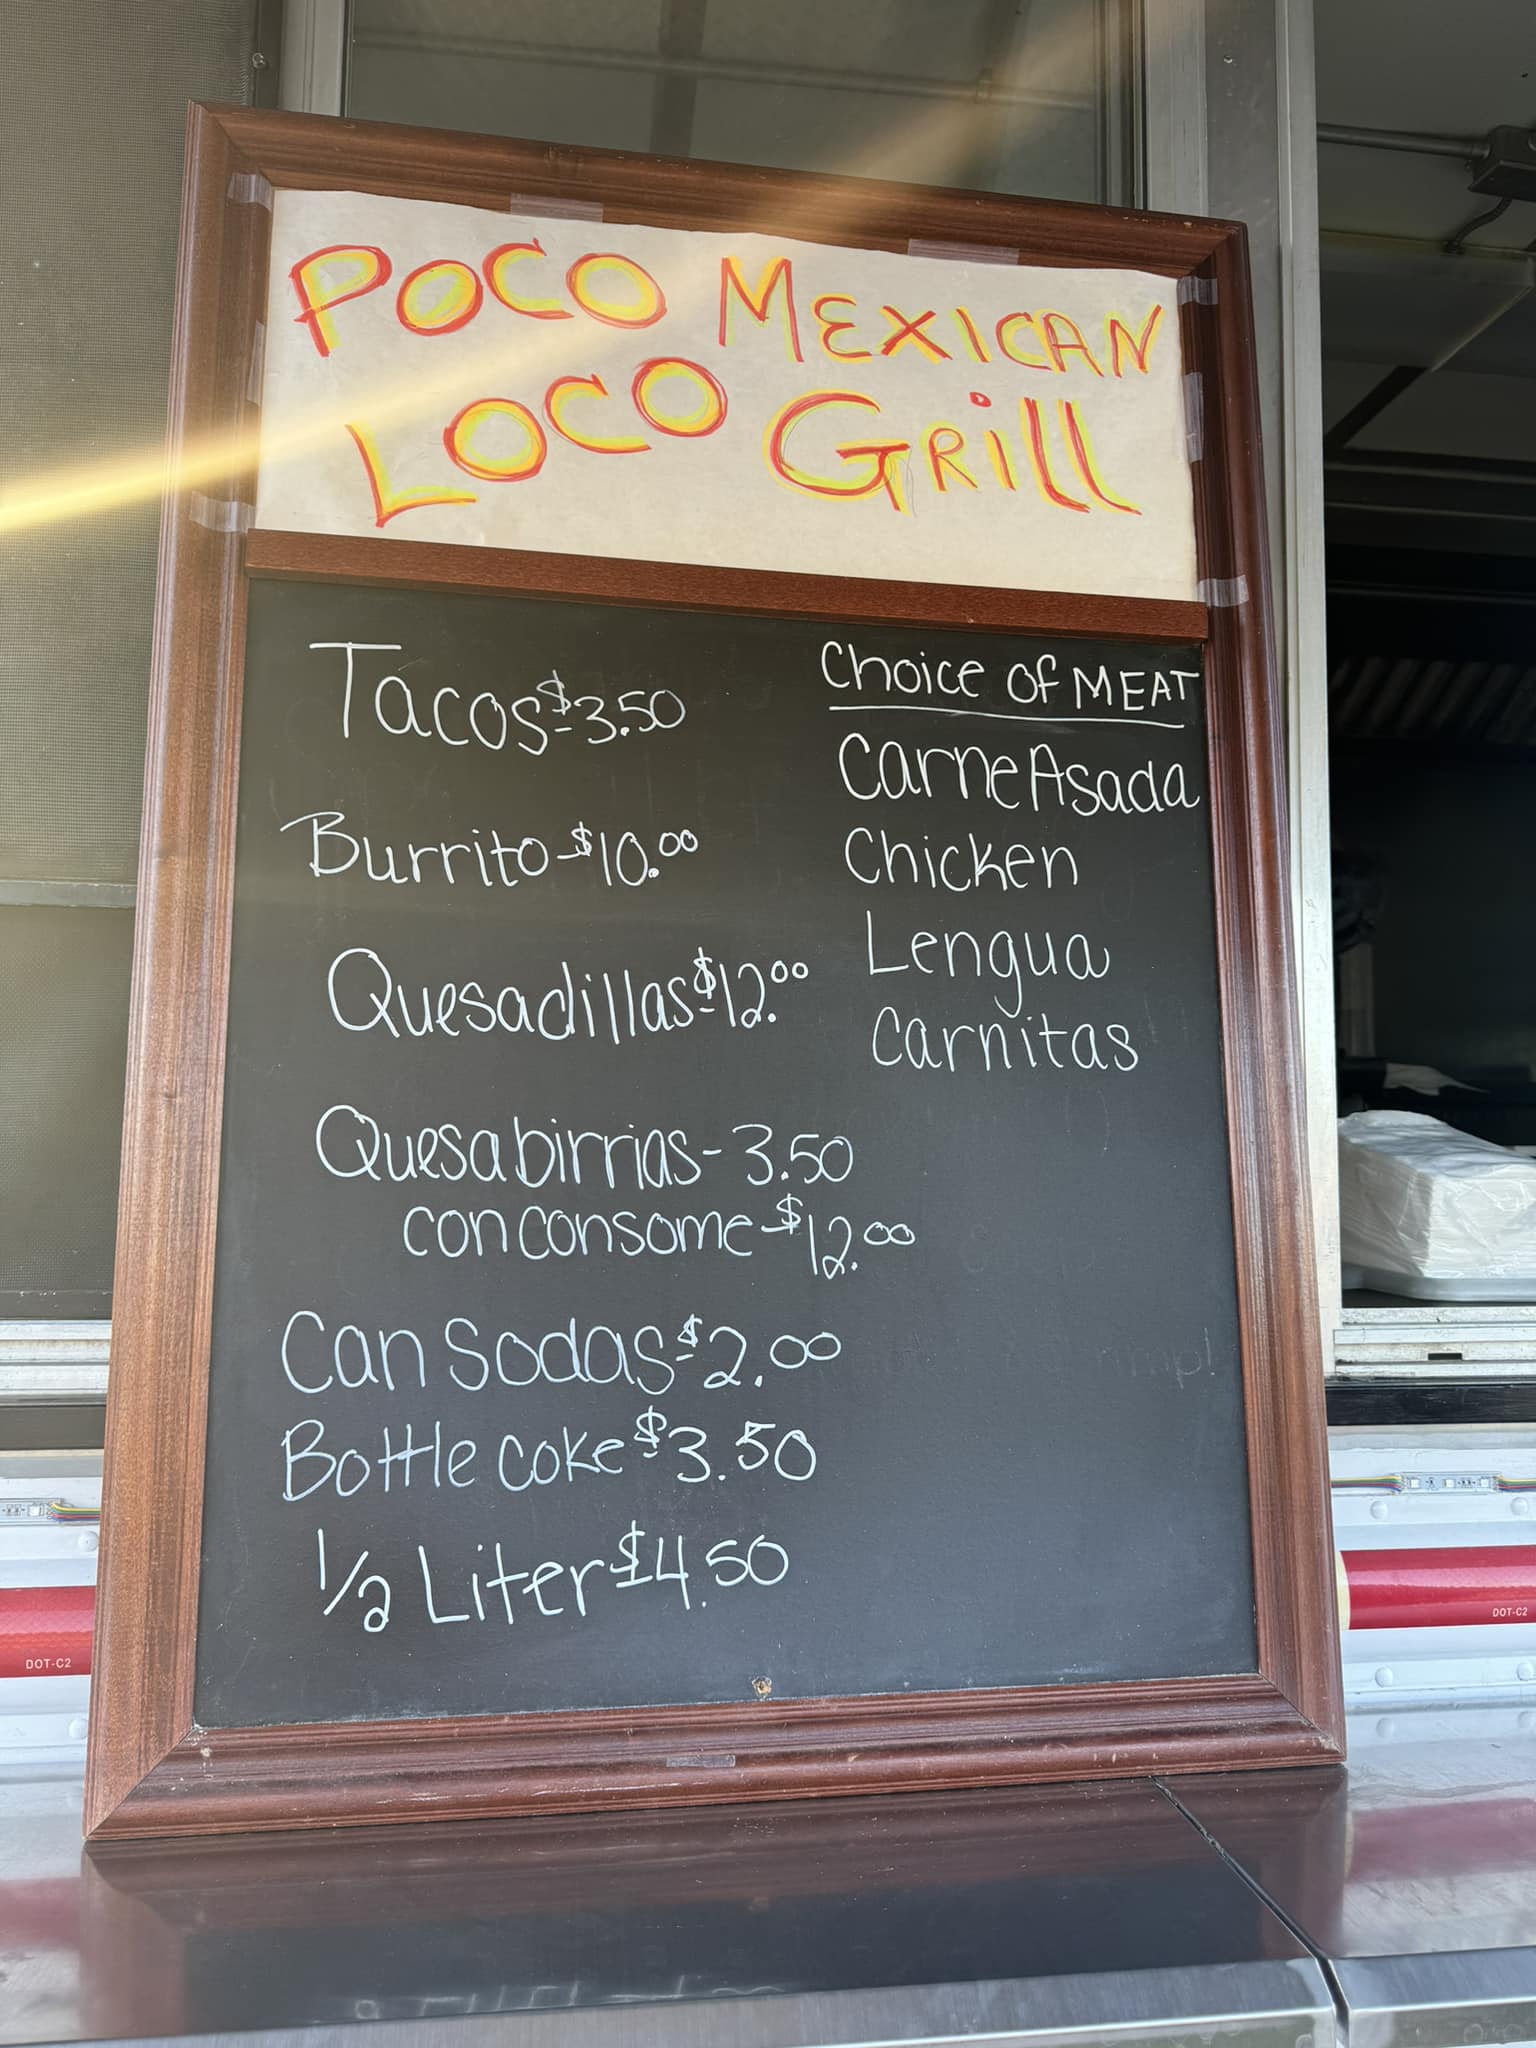 POCO MEXICAN
LOCO GRill
Tacos $3.50
Burrito - $10.00
Quesadillas $12.00
Quesabirrias - 3.50
con consome - $12.00
Can Sodas $2.00
Bottle coke $3.50
1/2 Liter $4.50
Choice of MEAT
Carne Asada
Chicken
Lengua
Carnitas
DOT-C2
DOT-C2